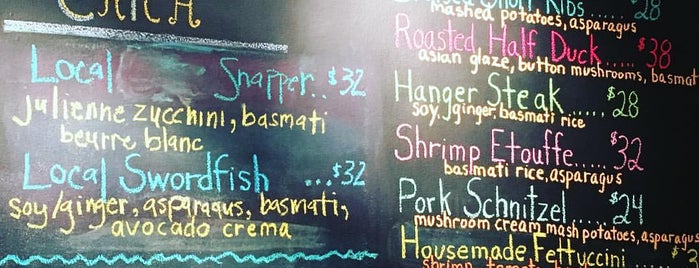 Catch
Local Snapper..$32
julienne zucchini, basmati
beurre blanc
Local Swordfish ...$32
soy/ginger, asparagus, basmati,
avocado crema
Short Ribs...... $28
mashed potatoes, asparagus
Roasted Half Duck..... $38
asian glaze, button mushrooms, basmat
Hanger Steak ..... $28
soy, ginger, basmati rice
Shrimp Etouffe..... $32
basmati rice, asparagus
Pork Schnitzel .... $24
mushroom cream, mash potatoes, asparagus
Housemade Fettuccini
shrimp,